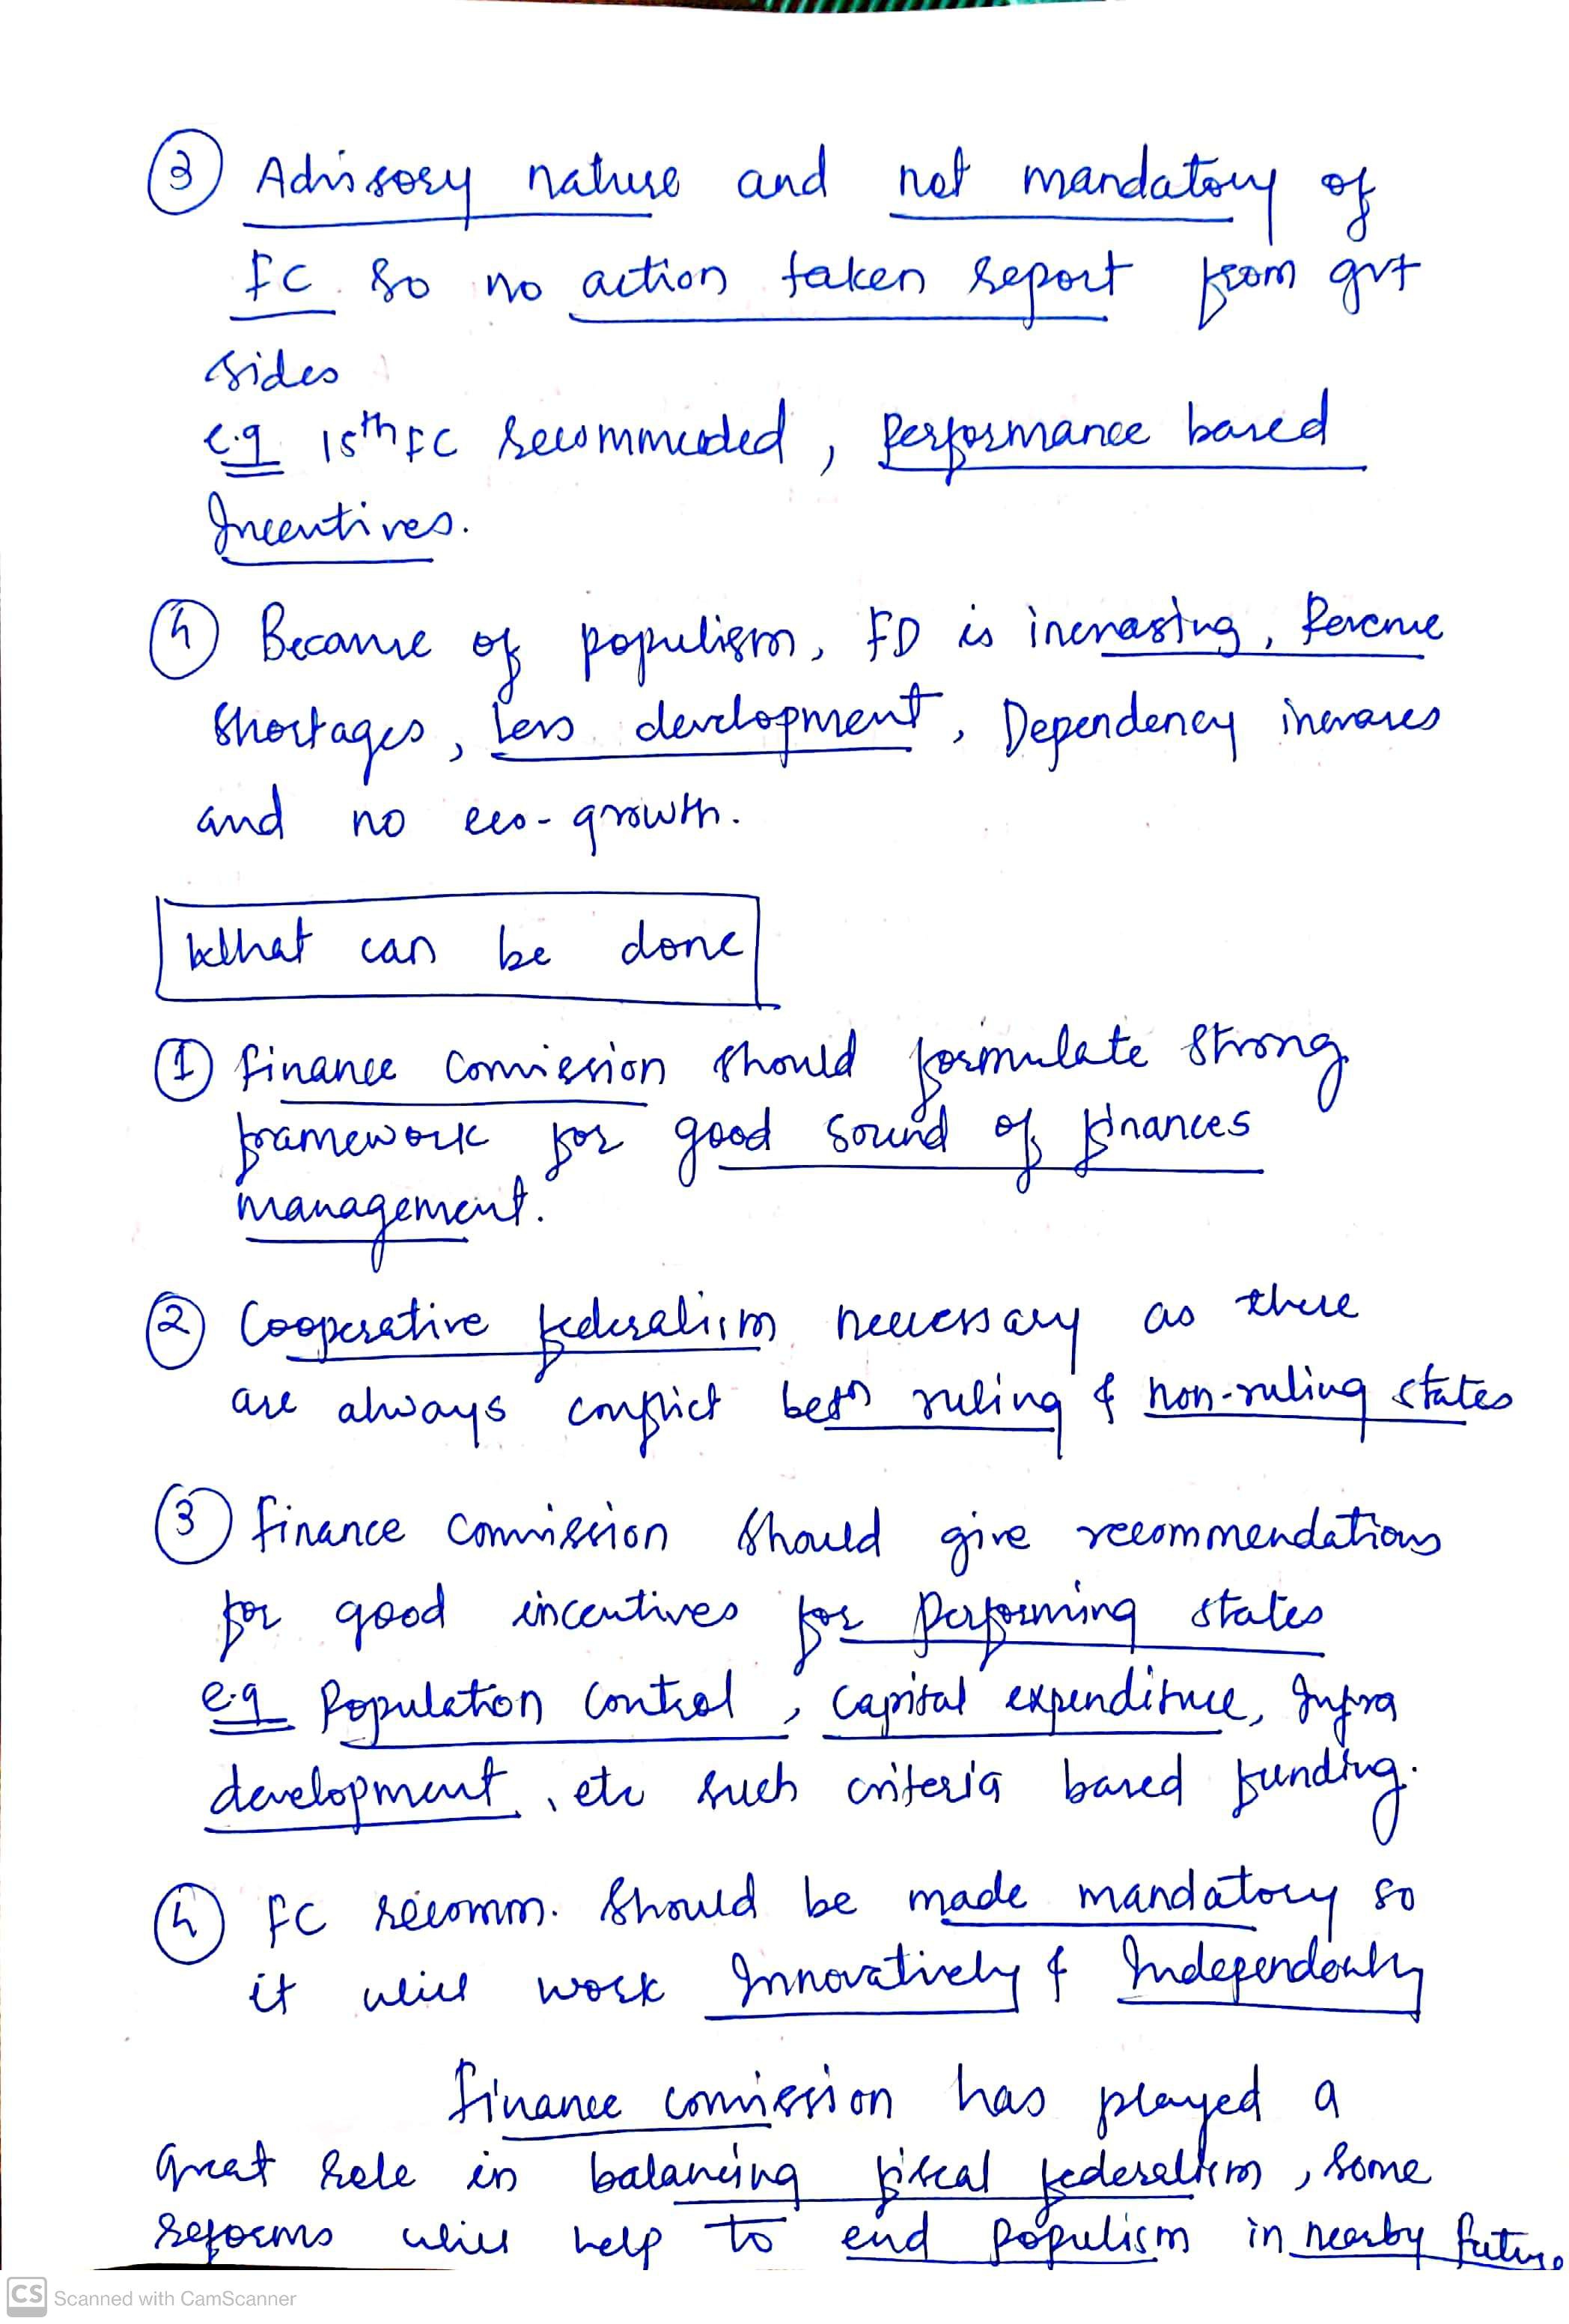 ③ Advisory nature and not mandatory of
FC so no action taken report from gvt
sides
e.g 15th FC recommended, Performance based
Incentives.
④ Because of populism, FD is increasing, Revenue
Shortages, Less development, Dependency increases
and no eco-growth.
What can be done
① Finance Comission should formulate strong
framework for good sound of finances
management.
② Cooperative federalism neccessary as there
are always conflict betn ruling & non-ruling states
③ Finance Commission should give recommendations
for good incentives for Performing states
e.g Population control, capital expenditure, Infra
development, etc such criteria based funding.
④ FC recomm. Should be made mandatory so
it will work Innovatively & Independently
Finance comission has played a
great role in balancing fiscal federalism, some
reforms will help to end Populism in nearby future
CS Scanned with CamScanner